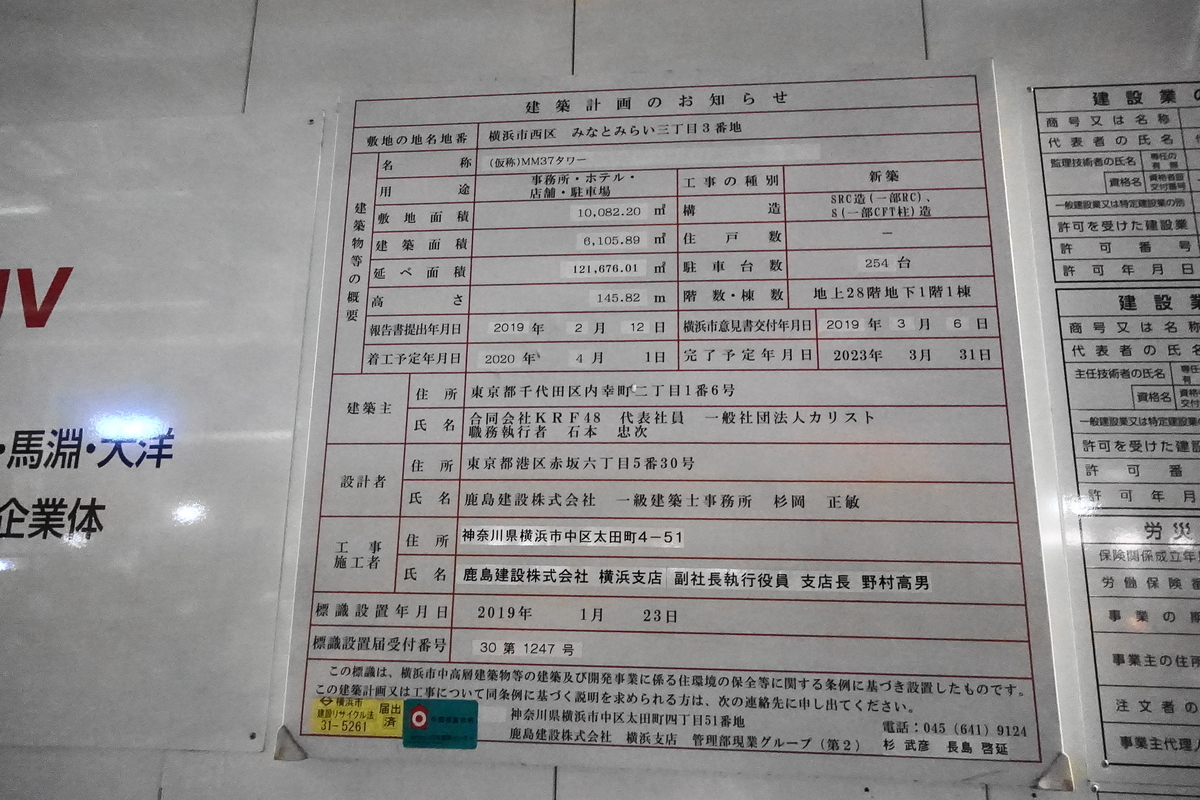 建築計画のお知らせ
敷地の地名地番 横浜市西区 みなとみらい三丁目3番地
建築物等の概要
名称 (仮称)MM37タワー
用途 事務所・ホテル・店舗・駐車場 工事の種別 新築
敷地面積 10,082.20 ㎡ 構造 SRC造(一部RC)、S(一部CFT柱)造
建築面積 6,105.89 ㎡ 住戸数 −
延べ面積 121,676.01 ㎡ 駐車台数 254 台
高さ 145.82 m 階数・棟数 地上28階地下1階1棟
報告書提出年月日 2019年 2月 12日 横浜市意見書交付年月日 2019年 3月 6日
着工予定年月日 2020年 4月 1日 完了予定年月日 2023年 3月 31日
建築主 住所 東京都千代田区内幸町二丁目1番6号
氏名 合同会社KRF48 代表社員 一般社団法人カリスト
職務執行者 石本 忠次
設計者 住所 東京都港区赤坂六丁目5番30号
氏名 鹿島建設株式会社 一級建築士事務所 杉岡 正敏
工事施工者 住所 神奈川県横浜市中区太田町4−51
氏名 鹿島建設株式会社 横浜支店 副社長執行役員 支店長 野村高男
標識設置年月日 2019年 1月 23日
標識設置届受付番号 30 第 1247 号
この標識は、横浜市中高層建築物等の建築及び開発事業に係る住環境の保全等に関する条例に基づき設置したものです。
この建築計画又は工事について同条例に基づく説明を求められる方は、次の連絡先に申し出てください。
神奈川県横浜市中区太田町四丁目51番地 電話:045 (641) 9124
鹿島建設株式会社 横浜支店 管理部現業グループ(第2) 杉 武彦 長島 啓延
横浜市
建設リサイクル法 届出済
31-5261
JV
・馬淵・大洋
企業体
建設業の
商号又は名称
代表者の氏名
監理技術者の氏名 専任の有無
資格名 資格者証交付番号
一般建設業又は特定建設業の別
許可を受けた建設業
許可番号
許可年月日
建設業
商号又は名称
代表者の氏名
主任技術者の氏名
資格名
一般建設業又は特定建設業の
許可を受けた建設業
許可番
許可年月
労災
保険関係成立年
労働保険番
事業の期
事業主の住所
注文者の
事業主代理人